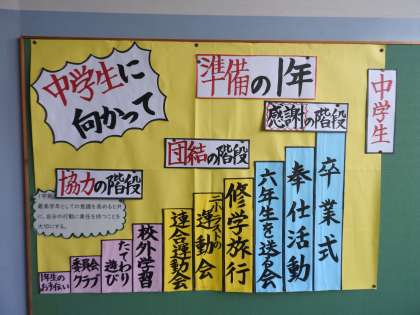 中学生に
向かって
準備の1年
中学生
感謝の階段
団結の階段
協力の階段
最高学年としての意識を高めると共
に、自分の行動に責任を持つことを
大切にする。
1年生の
お手伝い
委員会
クラブ
たてわり
遊び
校外学習
連合運動会
ニホトラストの
運動会
修学旅行
六年生を送る会
奉仕活動
卒業式